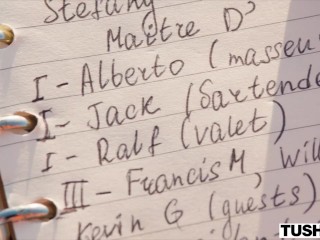 Stefany
Maître D'
I - Alberto (masseu
I - Jack (bartende
I - Ralf (valet)
III - Francis M, Will
Kevin G (guests)
TUSH